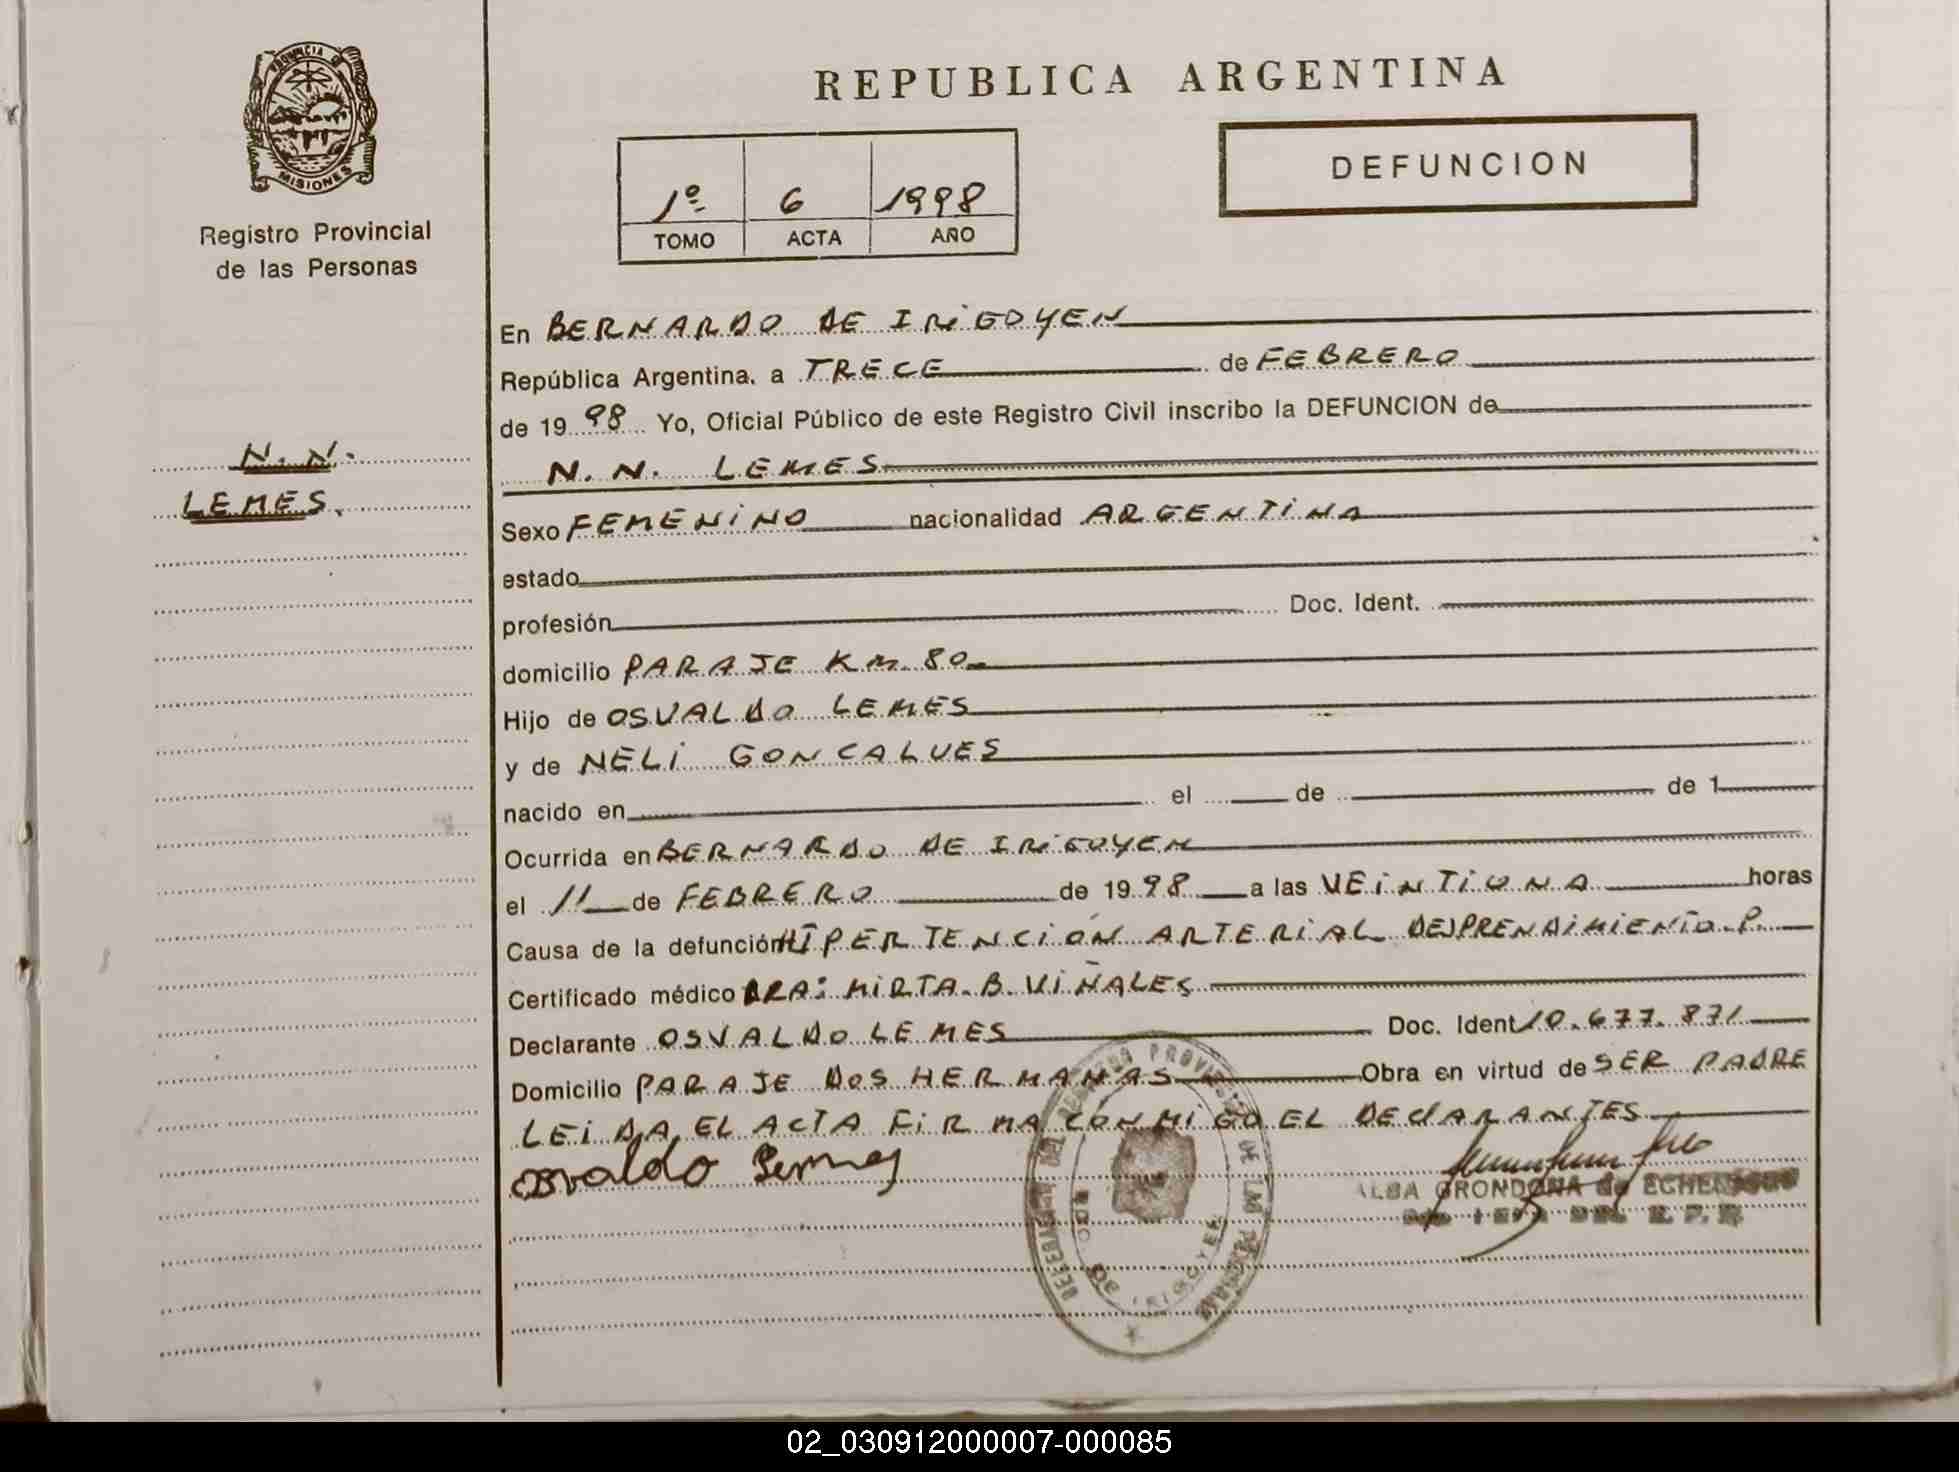 PROVINCIA DE
MISIONES
Registro Provincial
de las Personas
N. N.
LEMES.
REPUBLICA ARGENTINA
1º 6 1998
TOMO ACTA AÑO
DEFUNCION
En BERNARDO DE IRIGOYEN
República Argentina, a TRECE de FEBRERO
de 19 98 Yo, Oficial Público de este Registro Civil inscribo la DEFUNCION de
N. N. LEMES
Sexo FEMENINO nacionalidad ARGENTINA
estado
profesión Doc. Ident.
domicilio PARAJE KM. 80
Hijo de OSVALDO LEMES
y de NELI GONCALVES
nacido en el de de 1
Ocurrida en BERNARDO DE IRIGOYEN
el 11 de FEBRERO de 19 98 a las VEINTIUNA horas
Causa de la defunción HIPERTENCIÓN ARTERIAL DESPRENDIMIENTO. P.
Certificado médico DRA: MIRTA. B. VIÑALES
Declarante OSVALDO LEMES Doc. Ident 10.677.871
Domicilio PARAJE DOS HERMANAS Obra en virtud de SER PADRE
LEIDA EL ACTA FIRMA CONMIGO EL DECLARANTES
Osvaldo Lemes
ALBA GRONDONA de
DE LAS PERSONAS
BDO DE IRIGOYEN
02_030912000007-000085